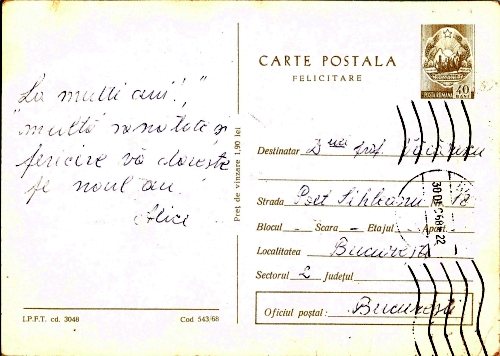 "La mulți ani!"
multă sănătate și
fericire vă dorește
pe noul an
Alice
I.P.F.T. cd. 3048
Cod 543/68
Preț de vînzare 1,90 lei
CARTE POSTALA
FELICITARE
POSTA ROMANA 40
Destinatar D-nei prof.
Strada Poet Sihleanu 18
Blocul - Scara - Etajul - Apart.
Localitatea București
Sectorul 2 județul
Oficiul poștal: București
30 DEC 68